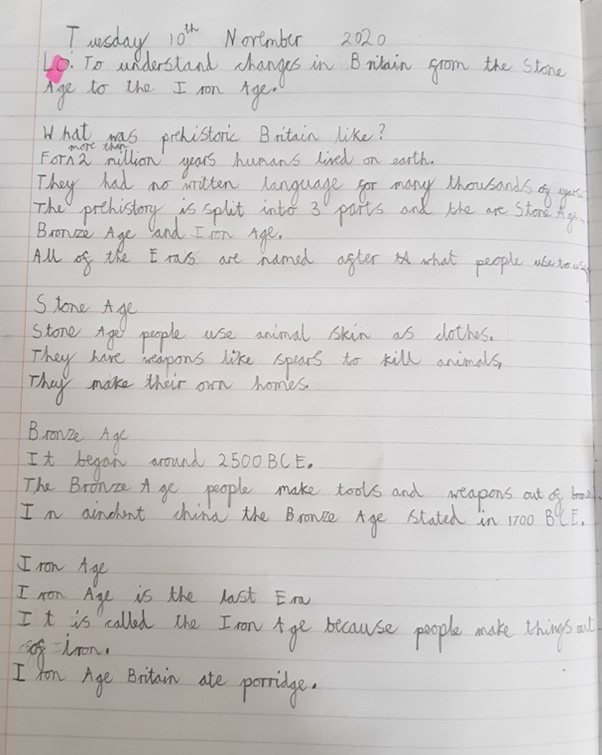 Tuesday 10th November 2020
LO: To understand changes in Britain from the Stone
Age to the Iron Age.
What was prehistoric Britain like?
more than
For 2 million years humans lived on earth.
They had no written language for many thousands of years
The prehistory is split into 3 parts and the are Stone Age,
Bronze Age and Iron Age.
All of the Eras are named after what people use to use
Stone Age
Stone Age people use animal skin as clothes.
They have weapons like spears to kill animals,
They make their own homes.
Bronze Age
It began around 2500 BCE.
The Bronze Age people make tools and weapons out of
In ainchent china the Bronze Age stated in 1700 BCE.
Iron Age
Iron Age is the last Era
It is called the Iron Age because people make things out
of iron.
Iron Age Britain ate porridge.